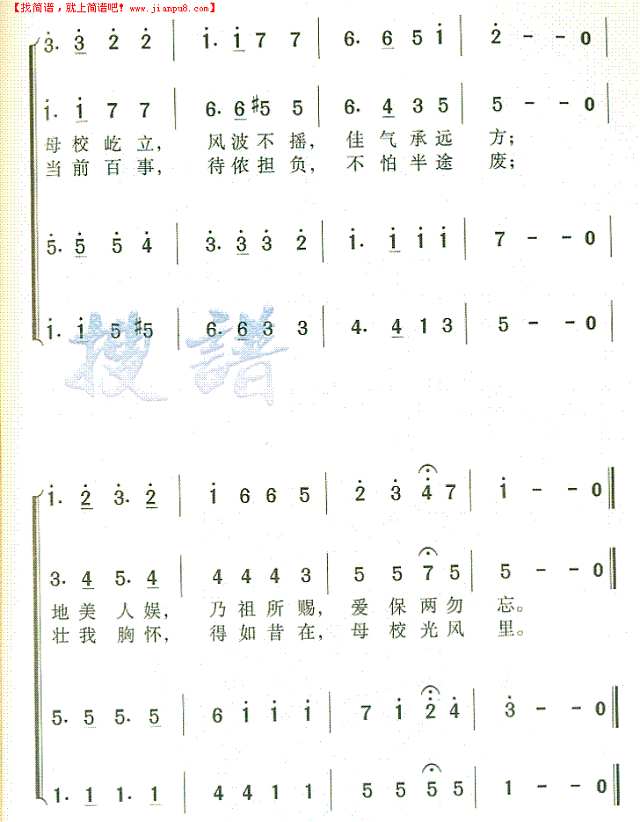 【找简谱，就上简谱吧！www.jianpu8.com】
3· 3 2 2 | 1· 1 7 7 | 6· 6 5 1 | 2 - - 0 |
1· 1 7 7 | 6· 6 #5 5 | 6· 4 3 5 | 5 - - 0 |
母校屹立，风波不摇，佳气承远方；
当前百事，待侬担负，不怕半途废；
5· 5 5 4 | 3· 3 3 2 | 1· 1 1 1 | 7 - - 0 |
1· 1 5 #5 | 6· 6 3 3 | 4· 4 1 3 | 5 - - 0 |
搜谱
1· 2 3· 2 | 1 6 6 5 | 2 3 4 7 | 1 - - 0
3· 4 5· 4 | 4 4 4 3 | 5 5 7 5 | 5 - - 0
地美人娱，乃祖所赐，爱保两勿忘。
壮我胸怀，得如昔在，母校光风里。
5· 5 5· 5 | 6 1 1 1 | 7 1 2 4 | 3 - - 0
1· 1 1· 1 | 4 4 1 1 | 5 5 5 5 | 1 - - 0